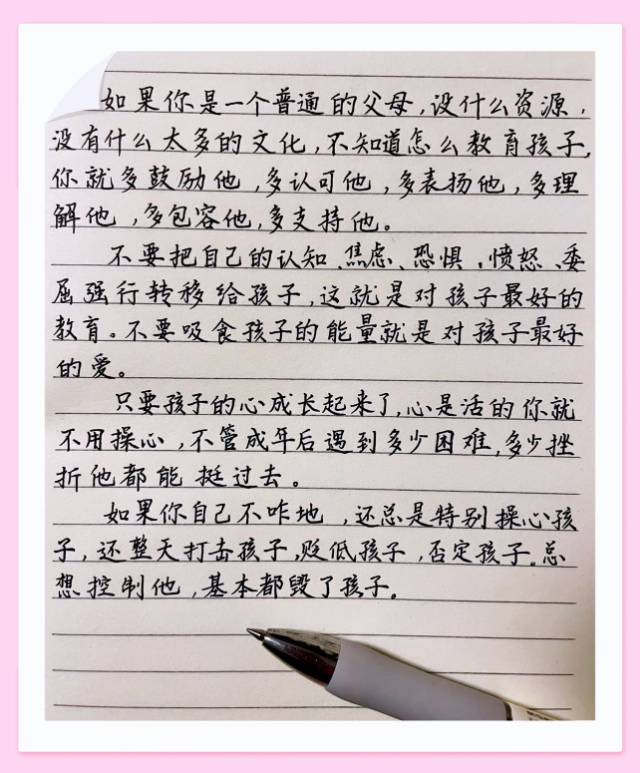 如果你是一个普通的父母,没什么资源,
没有什么太多的文化,不知道怎么教育孩子,
你就多鼓励他,多认可他,多表扬他,多理
解他,多包容他,多支持他。
不要把自己的认知、焦虑、恐惧、愤怒、委
屈强行转移给孩子,这就是对孩子最好的
教育。不要吸食孩子的能量就是对孩子最好
的爱。
只要孩子的心成长起来了,心是活的你就
不用操心,不管成年后遇到多少困难,多少挫
折他都能挺过去。
如果你自己不咋地,还总是特别操心孩
子,还整天打击孩子,贬低孩子,否定孩子。总
想控制他,基本都毁了孩子。